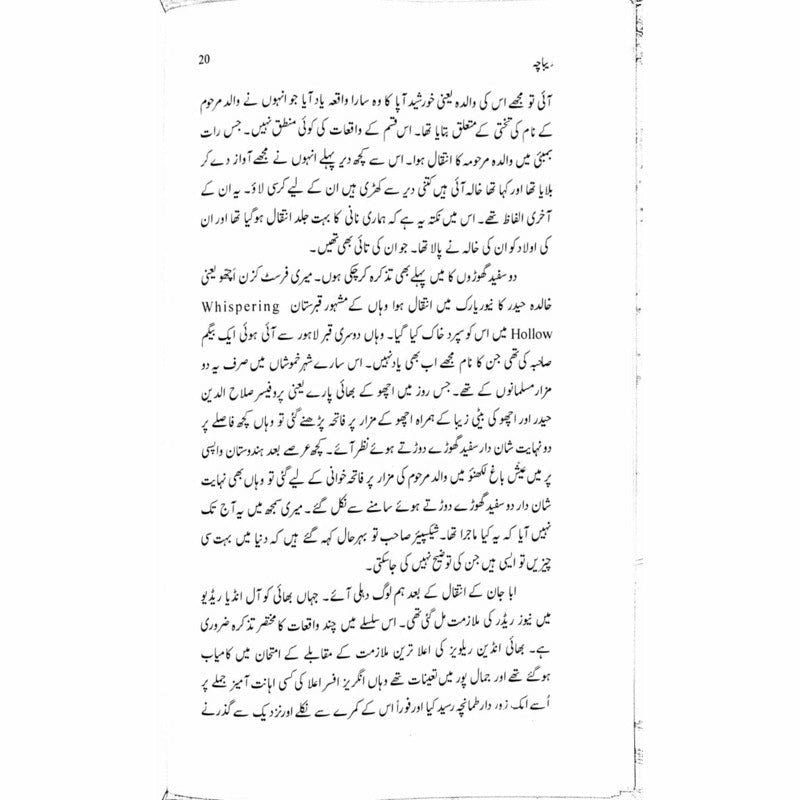 دیباچہ
20
آئی تو مجھے اس کی والدہ یعنی خورشید آپا کا وہ سارا واقعہ یاد آیا جو انہوں نے والد مرحوم
کے نام کی تختی کے متعلق بتایا تھا۔ اس قسم کے واقعات کی کوئی منطق نہیں۔ جس رات
بمبئی میں والدہ مرحومہ کا انتقال ہوا۔ اس سے کچھ دیر پہلے انہوں نے مجھے آواز دے کر
بلایا تھا اور کہا تھا خالہ آئی ہیں کتنی دیر سے کھڑی ہیں ان کے لیے کرسی لاؤ۔ یہ ان کے
آخری الفاظ تھے۔ اس میں نکتہ یہ ہے کہ ہماری نانی کا بہت جلد انتقال ہوگیا تھا اور ان
کی اولاد کو ان کی خالہ نے پالا تھا۔ جو ان کی تائی بھی تھیں۔
دو سفید گھوڑوں کا میں پہلے بھی تذکرہ کرچکی ہوں۔ میری فرسٹ کزن اَچھو یعنی
خالدہ حیدر کا نیویارک میں انتقال ہوا وہاں کے مشہور قبرستان Whispering
Hollow میں اس کو سپرد خاک کیا گیا۔ وہاں دوسری قبر لاہور سے آئی ہوئی ایک بیگم
صاحبہ کی تھی جن کا نام مجھے اب بھی یاد نہیں۔ اس سارے شہر خموشاں میں صرف یہ دو
مزار مسلمانوں کے تھے۔ جس روز میں اچھو کے بھائی پارے یعنی پروفیسر صلاح الدین
حیدر اور اچھو کی بیٹی زیبا کے ہمراہ اچھو کے مزار پر فاتحہ پڑھنے گئی تو وہاں کچھ فاصلے پر
دو نہایت شان دار سفید گھوڑے دوڑتے ہوئے نظر آئے۔ کچھ عرصے بعد ہندوستان واپسی
پر میں عیش باغ لکھنؤ میں والد مرحوم کی مزار پر فاتحہ خوانی کے لیے گئی تو وہاں بھی نہایت
شان دار دو سفید گھوڑے دوڑتے ہوئے سامنے سے نکل گئے۔ میری سمجھ میں یہ آج تک
نہیں آیا کہ یہ کیا ماجرا تھا۔ شیکسپیئر صاحب تو بہرحال کہہ گئے ہیں کہ دنیا میں بہت سی
چیزیں تو ایسی ہیں جن کی توضیح نہیں کی جاسکتی۔
ابا جان کے انتقال کے بعد ہم لوگ دہلی آئے۔ جہاں بھائی کو آل انڈیا ریڈیو
میں نیوز ریڈر کی ملازمت مل گئی تھی۔ اس سلسلے میں چند واقعات کا مختصر تذکرہ ضروری
ہے۔ بھائی انڈین ریلویز کی اعلا ترین ملازمت کے مقابلے کے امتحان میں کامیاب
ہوگئے تھے اور جمال پور میں تعینات تھے وہاں انگریز افسر اعلا کی کسی اہانت آمیز جملے پر
اُسے ایک زور دار طمانچہ رسید کیا اور فوراً اس کے کمرے سے نکلے اور نزدیک سے گذرنے